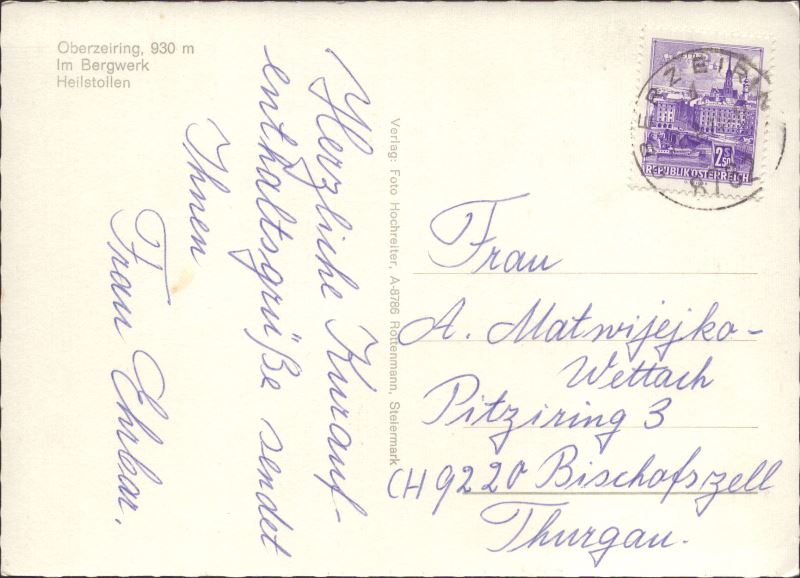 Oberzeiring, 930 m
Im Bergwerk
Heilstollen
Herzliche Kurauf-
enthaltsgrüße sendet
Ihnen
Frau Ehrbar.
Verlag: Foto Hochreiter, A-8786 Rottenmann, Steiermark
2.50
REPUBLIK ÖSTERREICH
Frau
A. Matwijejko-
Wettach
Pitziring 3
CH 9220 Bischofszell
Thurgau.